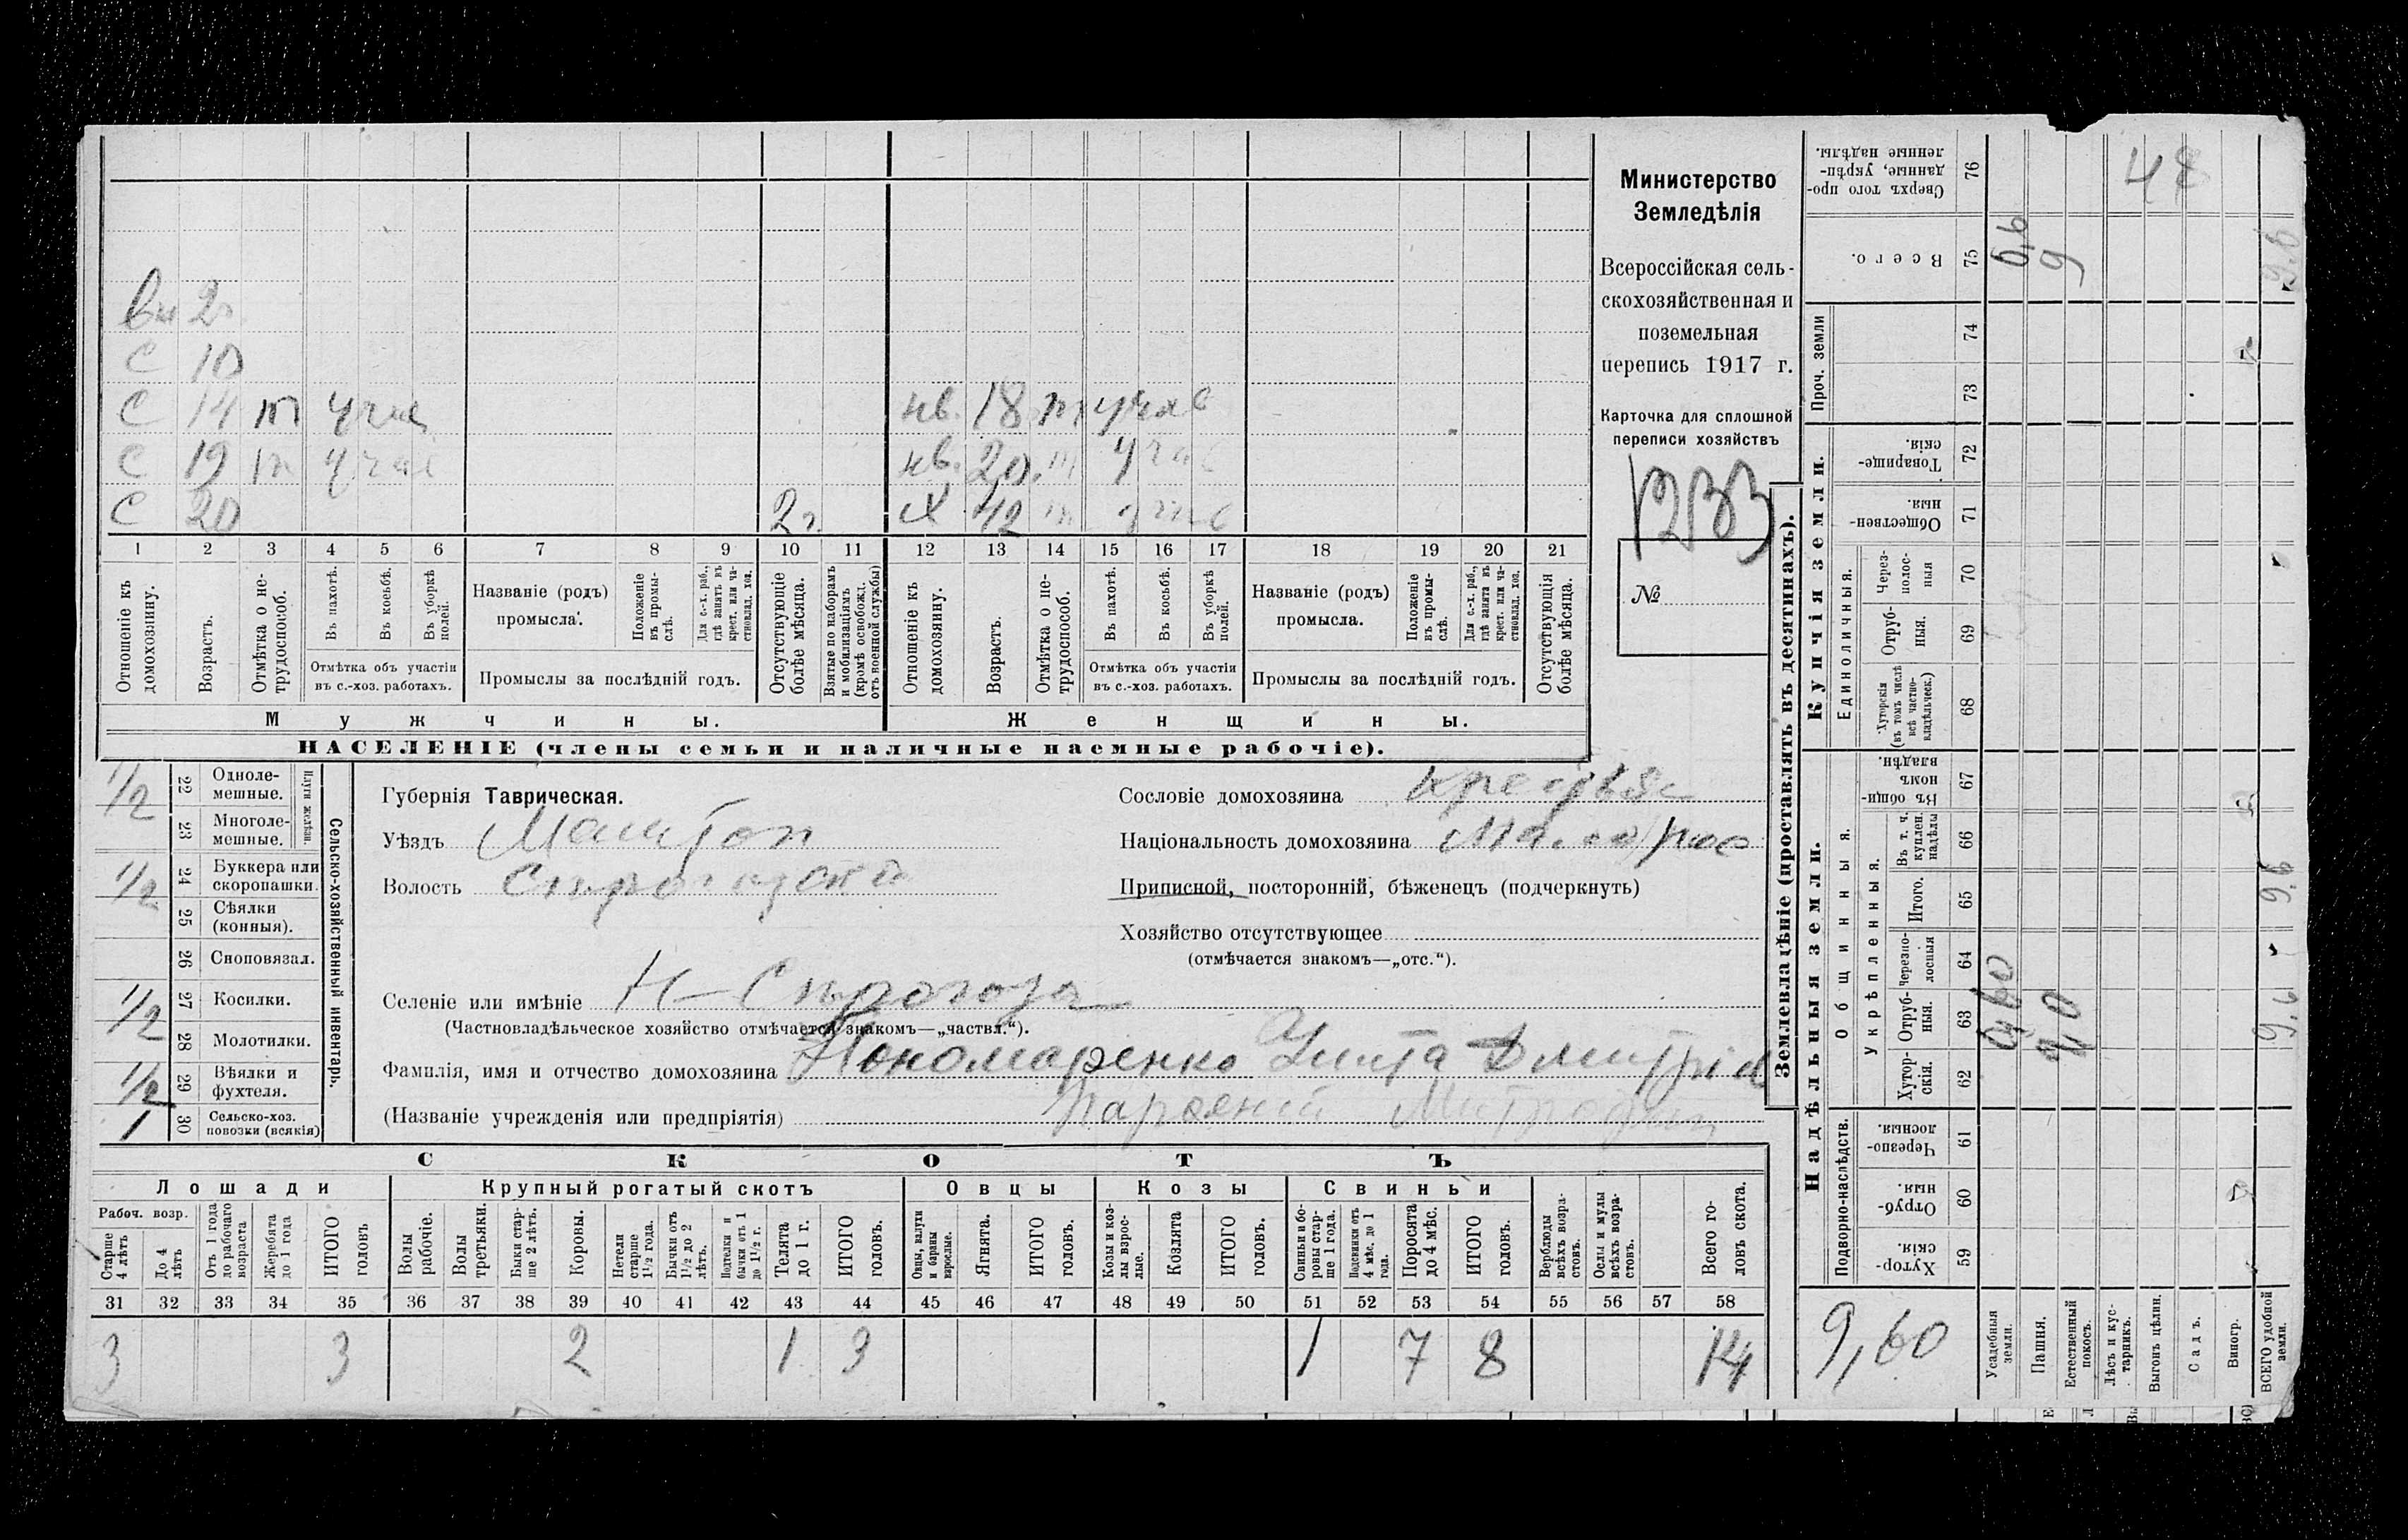 вн 2
С 10
С 14 т учас нв. 18 т учас
С 19 т учас нв. 20. т учас
С 20 2 г. Х 42 т учас
1 2 3 4 5 6 7 8 9 10 11 12 13 14 15 16 17 18 19 20 21
Отношеніе къ домохозяину.
Возрастъ.
Отмѣтка о не-трудоспособ.
Въ пахотѣ.
Въ косьбѣ.
Въ уборкѣ полей.
Отмѣтка объ участіи въ с.-хоз. работахъ.
Названіе (родъ) промысла.
Положеніе въ промы-слѣ.
Для с.-х. раб., гдѣ занятъ въ крест. или ча-стновлад. хоз.
Промыслы за послѣдній годъ.
Отсутствующіе болѣе мѣсяца.
Взятые по наборамъ и мобилизаціямъ (кромѣ освобожд. отъ военной службы)
Отношеніе къ домохозяину.
Возрастъ.
Отмѣтка о не-трудоспособ.
Въ пахотѣ.
Въ косьбѣ.
Въ уборкѣ полей.
Отмѣтка объ участіи въ с.-хоз. работахъ.
Названіе (родъ) промысла.
Положеніе въ промы-слѣ.
Для с.-х. раб., гдѣ занята въ крест. или ча-стновлад. хоз.
Промыслы за послѣдній годъ.
Отсутствующія болѣе мѣсяца.
Мужчины. Женщины.
НАСЕЛЕНІЕ (члены семьи и наличные наемные рабочіе).
Министерство
Земледѣлія
Всероссійская сель-
скохозяйственная и
поземельная
перепись 1917 г.
Карточка для сплошной
переписи хозяйствъ
1233
№
1/2 22 Одноле-мешные.
23 Многоле-мешные.
Плуги желѣзн.
1/2 24 Буккера или скоропашки.
25 Сѣялки (конныя).
26 Сноповязал.
1/2 27 Косилки.
28 Молотилки.
1/2 29 Вѣялки и фухтеля.
1 30 Сельско-хоз. повозки (всякія)
Сельско-хозяйственный инвентарь.
Губернія Таврическая.
Уѣздъ Мелитоп
Волость
Сословіе домохозяина
Національность домохозяина Малорос
Приписной, посторонній, бѣженецъ (подчеркнуть)
Хозяйство отсутствующее
(отмѣчается знакомъ—„отс.“).
Селеніе или имѣніе Н-Сѣрогозы
(Частновладѣльческое хозяйство отмѣчается знакомъ—„частвл.“).
Фамилія, имя и отчество домохозяина Пономаренко
(Названіе учрежденія или предпріятія)
СКОТЪ
Лошади Крупный рогатый скотъ Овцы Козы Свиньи
Рабоч. возр.
Старше 4 лѣтъ
До 4 лѣтъ
Отъ 1 года до рабочаго возраста
Жеребята до 1 года
ИТОГО головъ
Волы рабочіе.
Волы третьяки.
Быки стар-ше 2 лѣтъ.
Коровы.
Нетели старше 1½ года.
Бычки отъ 1½ до 2 лѣтъ.
Подтелки и бычки отъ 1 до 1½ г.
Телята до 1 г.
ИТОГО головъ.
Овцы, валухи и бараны взрослые.
Ягнята.
ИТОГО головъ.
Козы и коз-лы взрос-лые.
Козлята
ИТОГО головъ.
Свиньи и бо-ровы стар-ше 1 года.
Подсвинки отъ 4 мѣс. до 1 года.
Поросята до 4 мѣс.
ИТОГО головъ.
Верблюды всѣхъ возра-стовъ.
Ослы и мулы всѣхъ возра-стовъ.
Всего го-ловъ скота.
31 32 33 34 35 36 37 38 39 40 41 42 43 44 45 46 47 48 49 50 51 52 53 54 55 56 57 58
3 3 2 1 3 1 7 8 14
Землевладѣніе (проставлять въ десятинахъ).
Сверхъ того про-данные, укрѣп-ленные надѣлы. 76
48
Всего. 75 0,6 9 9.6
Проч. земли 74 73
Купчія земли.
Товарище-скія. 72
Обществен-ныя. 71
Единоличныя.
Через-полос-ныя 70
Отруб-ныя. 69
Хуторскія (въ томъ числѣ всѣ частно-владѣльческ.) 68
Надѣльныя земли.
Общинныя.
Въ общин-номъ владѣн. 67
Укрѣпленныя.
Въ т. ч. куплен. надѣлы 66
Итого. 65 9.6
Черезпо-лосныя 64
Отруб-ныя. 63 0,60 9,0 9.6
Хутор-скія. 62
Подворно-наслѣдств.
Черезпо-лосныя. 61
Отруб-ныя. 60
Хутор-скія. 59
9,60
Усадебныя земли.
Пашня.
Естественный покосъ.
Лѣсъ и кус-тарникъ.
Выгонъ цѣлин.
Садъ.
Виногр.
ВСЕГО удобной земли.